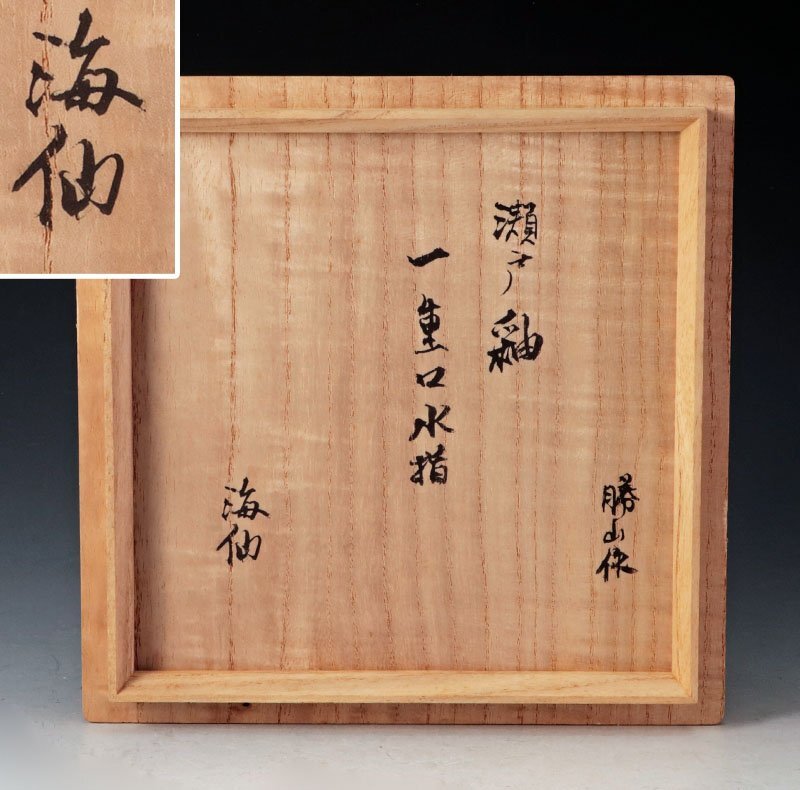 瀬戸釉
一重口水指
勝山作
海仙
海仙